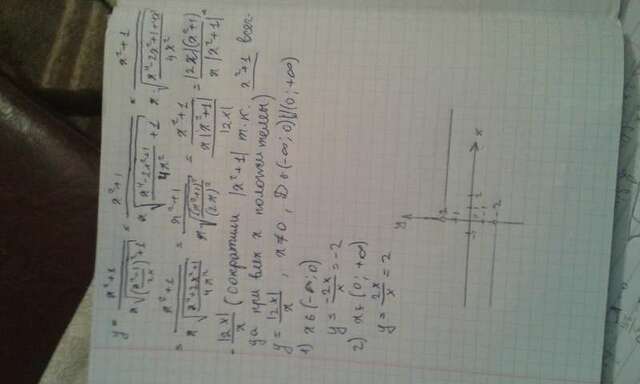 y = \frac{x²+1}{x\sqrt{(\frac{x²-1}{2x})²+1}} = \frac{x²+1}{x\sqrt{\frac{x⁴-2x²+1}{4x²}+1}} = \frac{x²+1}{x\sqrt{\frac{x⁴-2x²+1+4x²}{4x²}}}
= \frac{x²+1}{x\sqrt{\frac{x⁴+2x²+1}{4x²}}} = \frac{x²+1}{x\sqrt{\frac{(x²+1)²}{(2x)²}}} = \frac{x²+1}{\frac{x|x²+1|}{|2x|}} = \frac{|2x|(x²+1)}{x|x²+1|} =
= \frac{|2x|}{x} (сократили |x²+1| т.к. x²+1 всег-
да при всех x положителен)
y = \frac{|2x|}{x}, x≠0, D ∈ (-∞;0)∪(0;+∞)
1) x ∈ (-∞;0)
y = \frac{-2x}{x} = -2
2) x ∈ (0; +∞)
y = \frac{2x}{x} = 2
y
2
1
-1 0 1 2 x
-1
-2